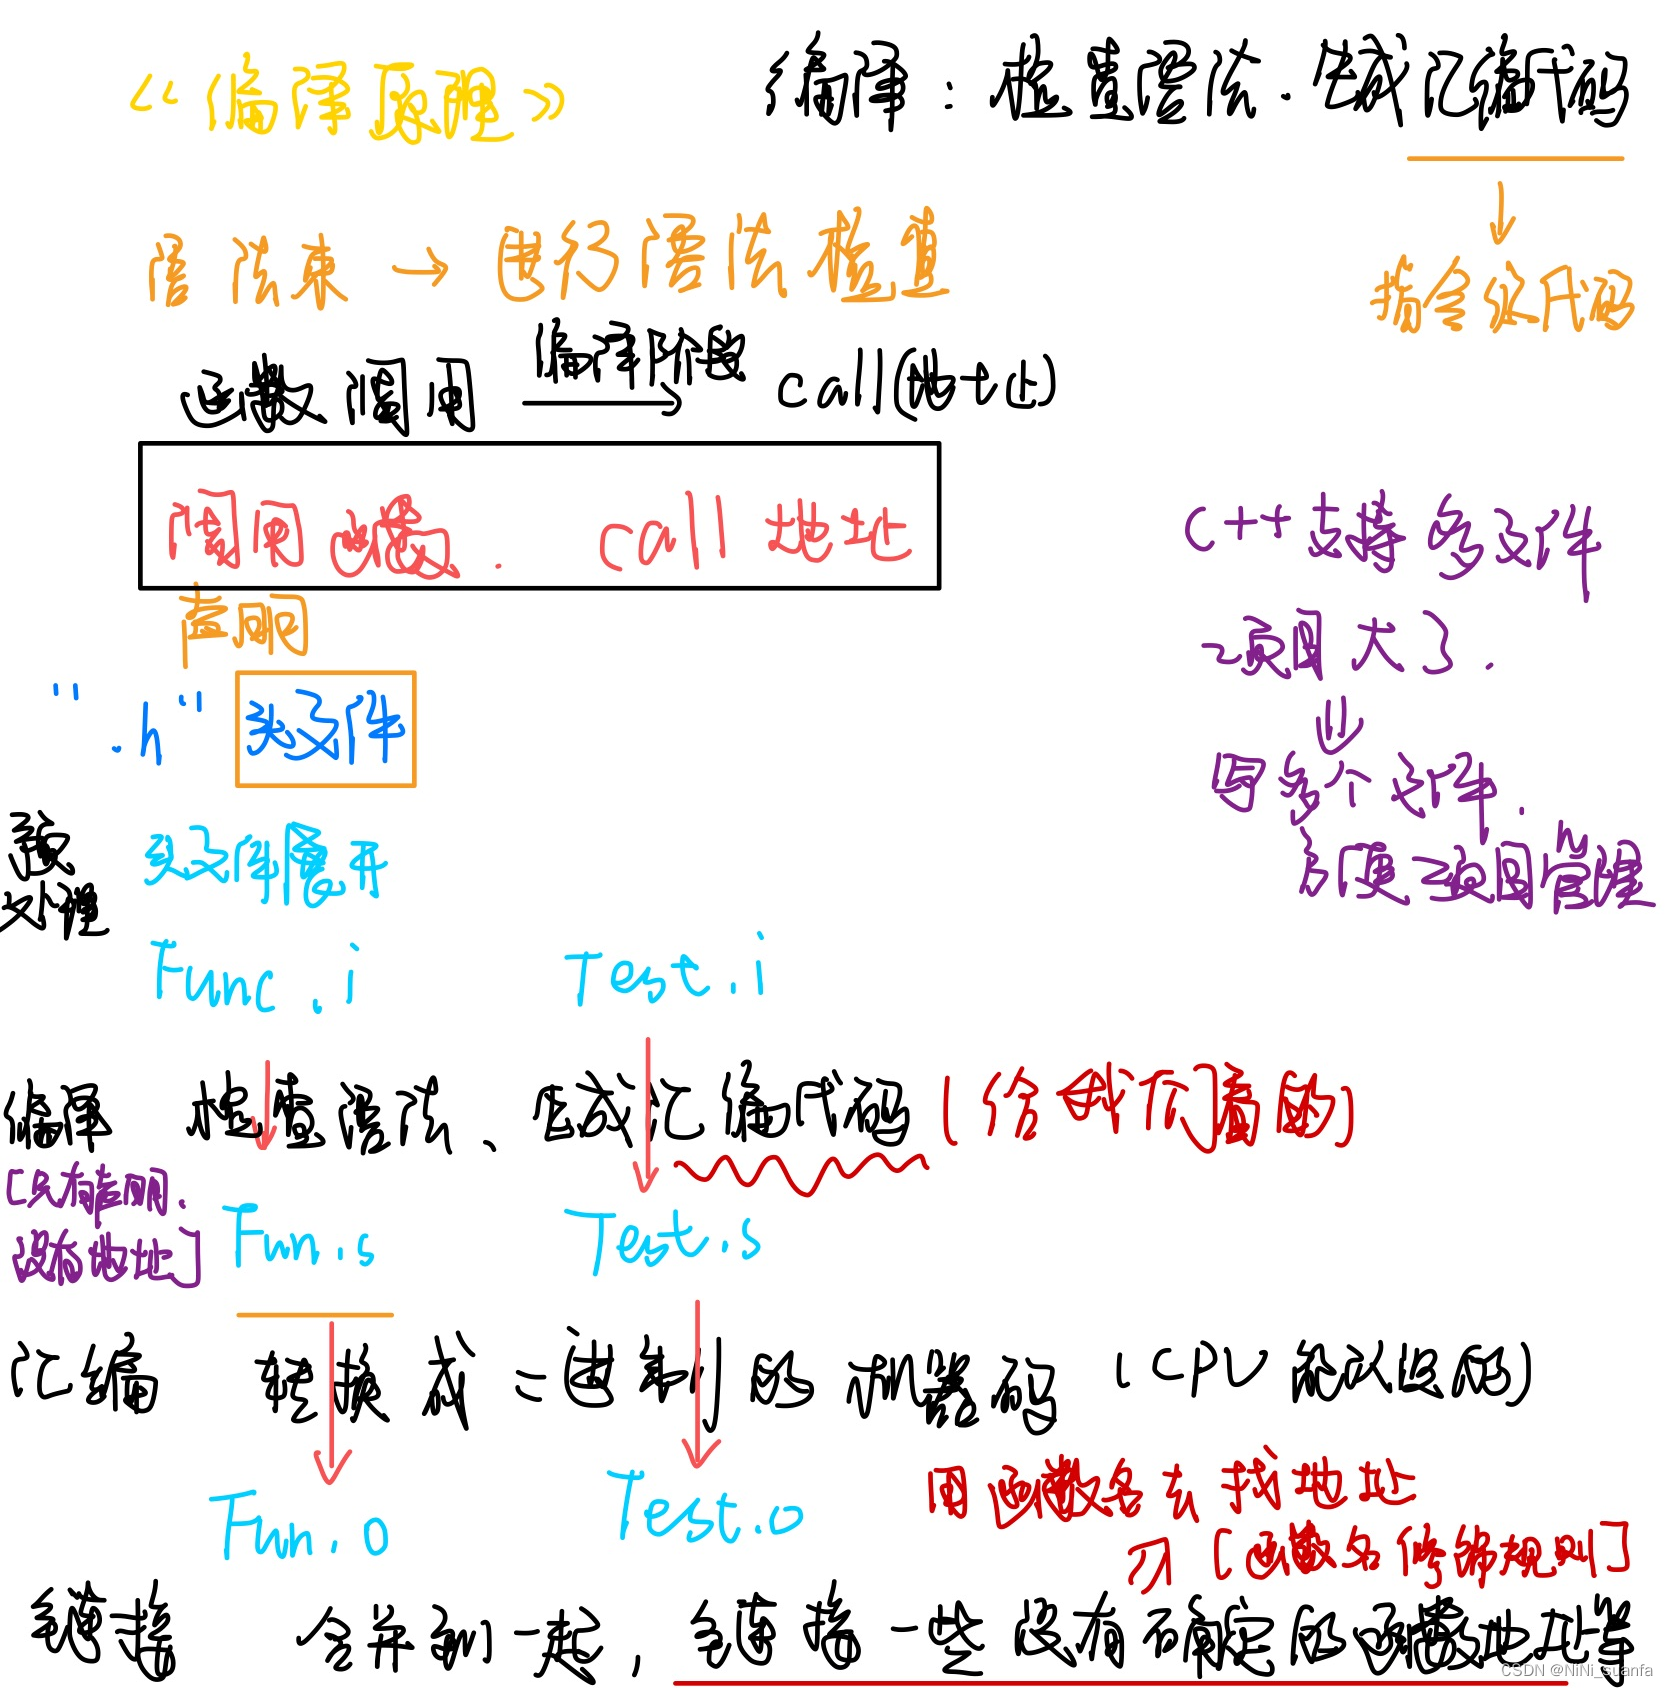 《编译原理》
编译：检查语法.生成汇编代码
指令级代码
语法束 → 进行语法检查
函数调用 编译阶段 call(地址)
调用函数. call 地址
声明
".h" 头文件
C++支持多文件
项目大了.
写多个文件.
方便项目管理
预处理
头文件展开
Func.i Test.i
编译 检查语法、生成汇编代码 (给我们看的)
[只有声明.
没有地址]
Fun.s Test.s
汇编 转换成二进制的机器码 (CPU能认识的)
Fun.o Test.o
用函数名去找地址
[函数名修饰规则]
链接 合并到一起，链接一些没有确定的函数地址等
CSDN @NiNi_suanfa